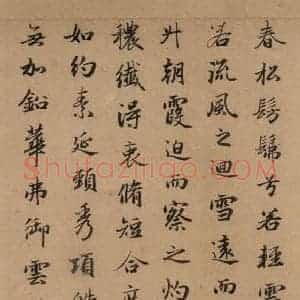 春松髣髴兮若輕雲
若流風之迴雪遠而
升朝霞迫而察之灼
穠纖得衷脩短合度
如約素延頸秀項皓
無加鉛華弗御雲
Shufazidian.COM